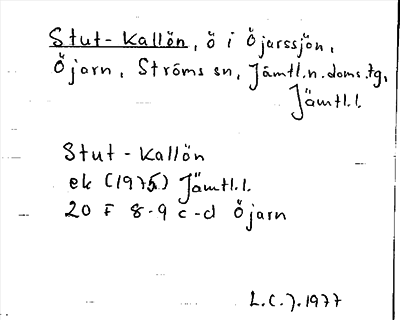 Stut-Kallön, ö i Öjarssjön,
Öjarn, Ströms sn, Jämtl.n.doms.tg,
Jämtl.l.
Stut-Kallön
ek (1975) Jämtl.l.
20 F 8-9 c-d Öjarn
L.C.J. 1977